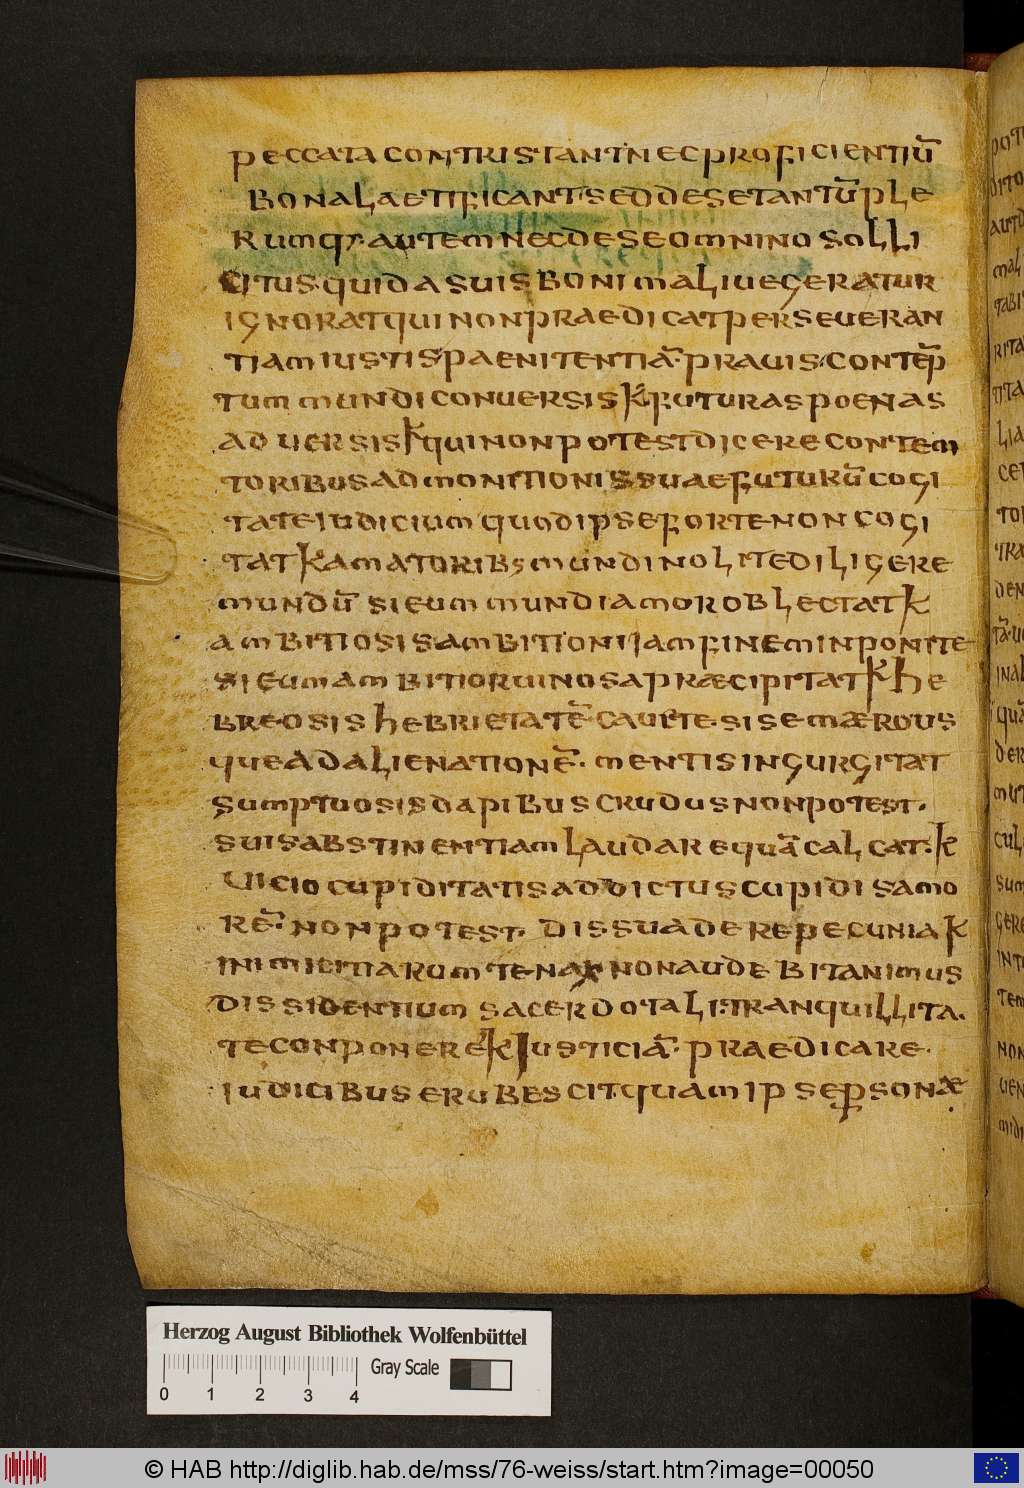 peccata contristant nec proficientiū
bona laetificant· sed desetantū ple
rumq; autem nec de se omnino solli
citus· quid a suis boni mali ue geratur
ignorat qui non praedicat perseueran
tiam iustis paenitentiā· prauis· contēp
tum mundi conuersis k futuras poenas
aduersis k qui non potest dicere contem
toribus admonitionis suae futurū cogi
tate iudicium quod ipse forte non cogi
tat k amatorib; mundi nolite diligere
mundū si eum mundi amor oblectat k
ambitiosis ambitioni iam finem inponite
si eum ambitio ruinosa præcipitat k he
breosis hebrietatē· cauete· si se mærous
que ad alienationē· mentis ingurgitat
sumptuosis dapibus crudus non potest·
suis abstinentiam laudare quā calcat· k
uicio cupiditatis addictus cupidis amo
rē· non potest· dissuadere pecunia k
inimicitiarum tenax non audebit animus
dissidentium sacerdotali tranquillita·
te conponere k iusticiā· praedicare·
iudicibus erubescit· quam ipse p̱sonæ
Herzog August Bibliothek Wolfenbüttel
Gray Scale
0 1 2 3 4
© HAB http://diglib.hab.de/mss/76-weiss/start.htm?image=00050